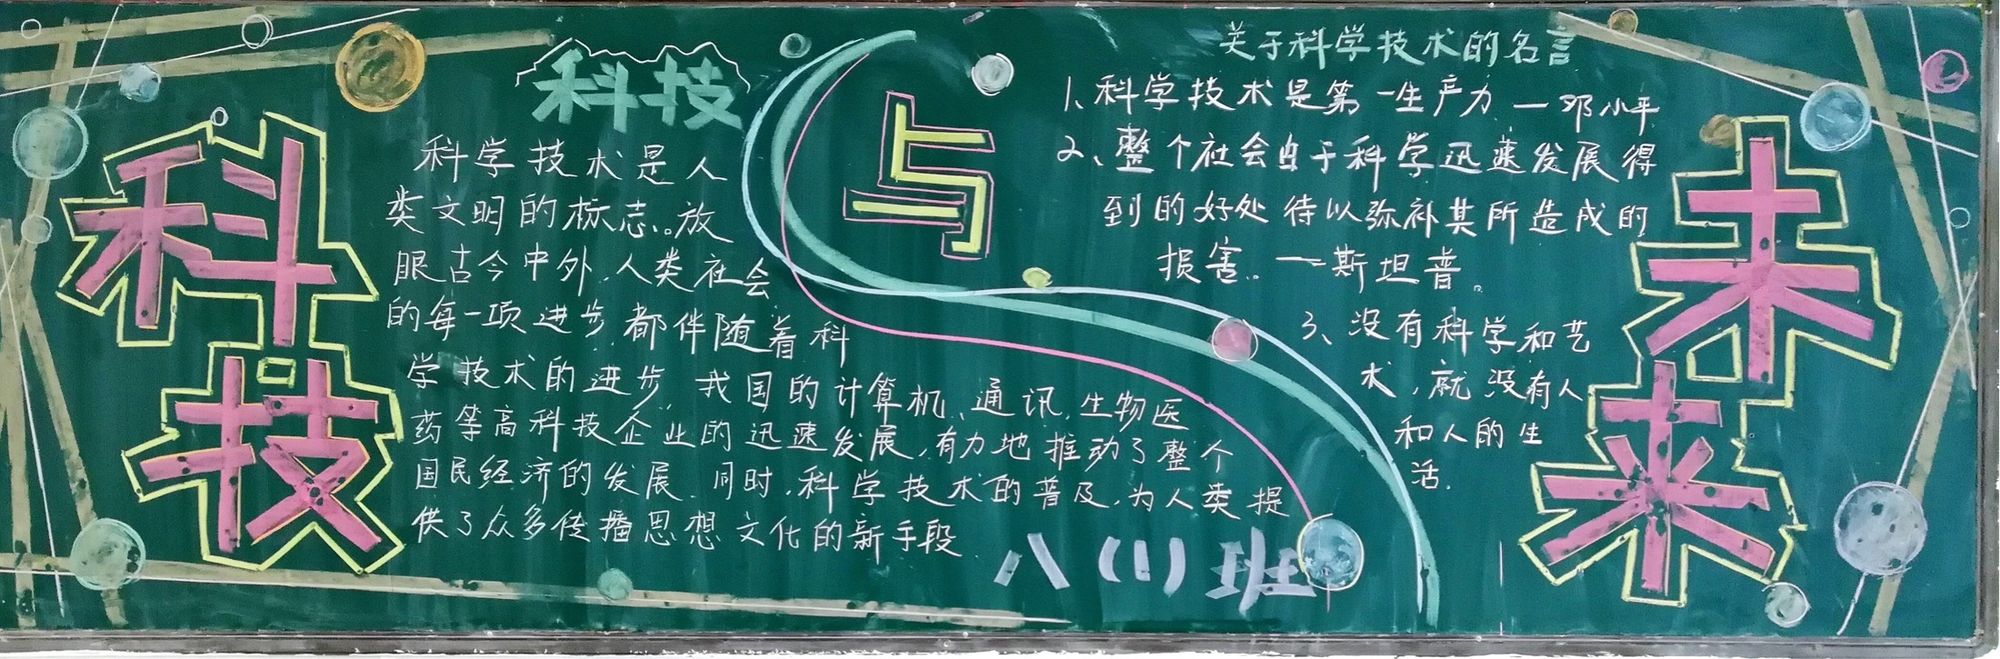 科技
与
未来
科技
科学技术是人
类文明的标志。放
眼古今中外,人类社会
的每一项进步,都伴随着科
学技术的进步,我国的计算机、通讯,生物医
药等高科技企业的迅速发展,有力地推动了整个
国民经济的发展,同时,科学技术的普及,为人类提
供了众多传播思想文化的新手段
关于科学技术的名言
1、科学技术是第一生产力 —邓小平
2、整个社会由于科学迅速发展得
到的好处待以弥补其所造成的
损害。—斯坦普。
3、没有科学和艺
术,就没有人
和人的生
活.
八(1)班